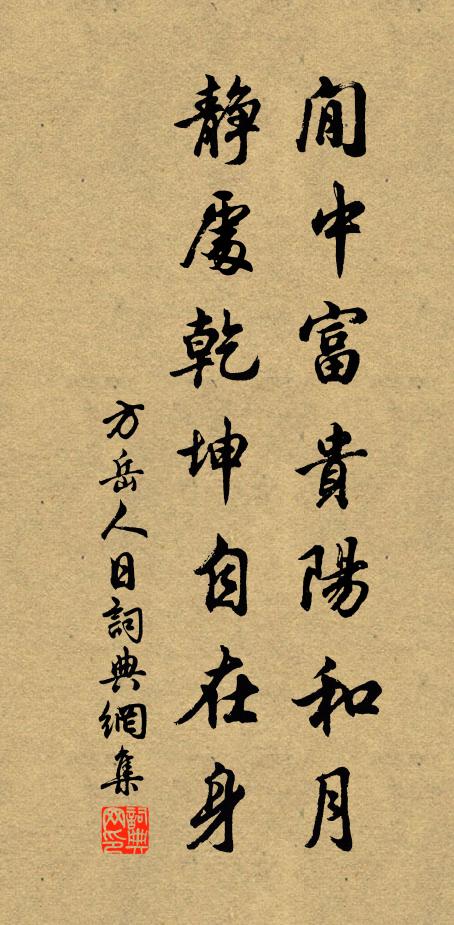 閒中富貴陽和月
靜處乾坤自在身
方岳人日詞典網集
詞典網印